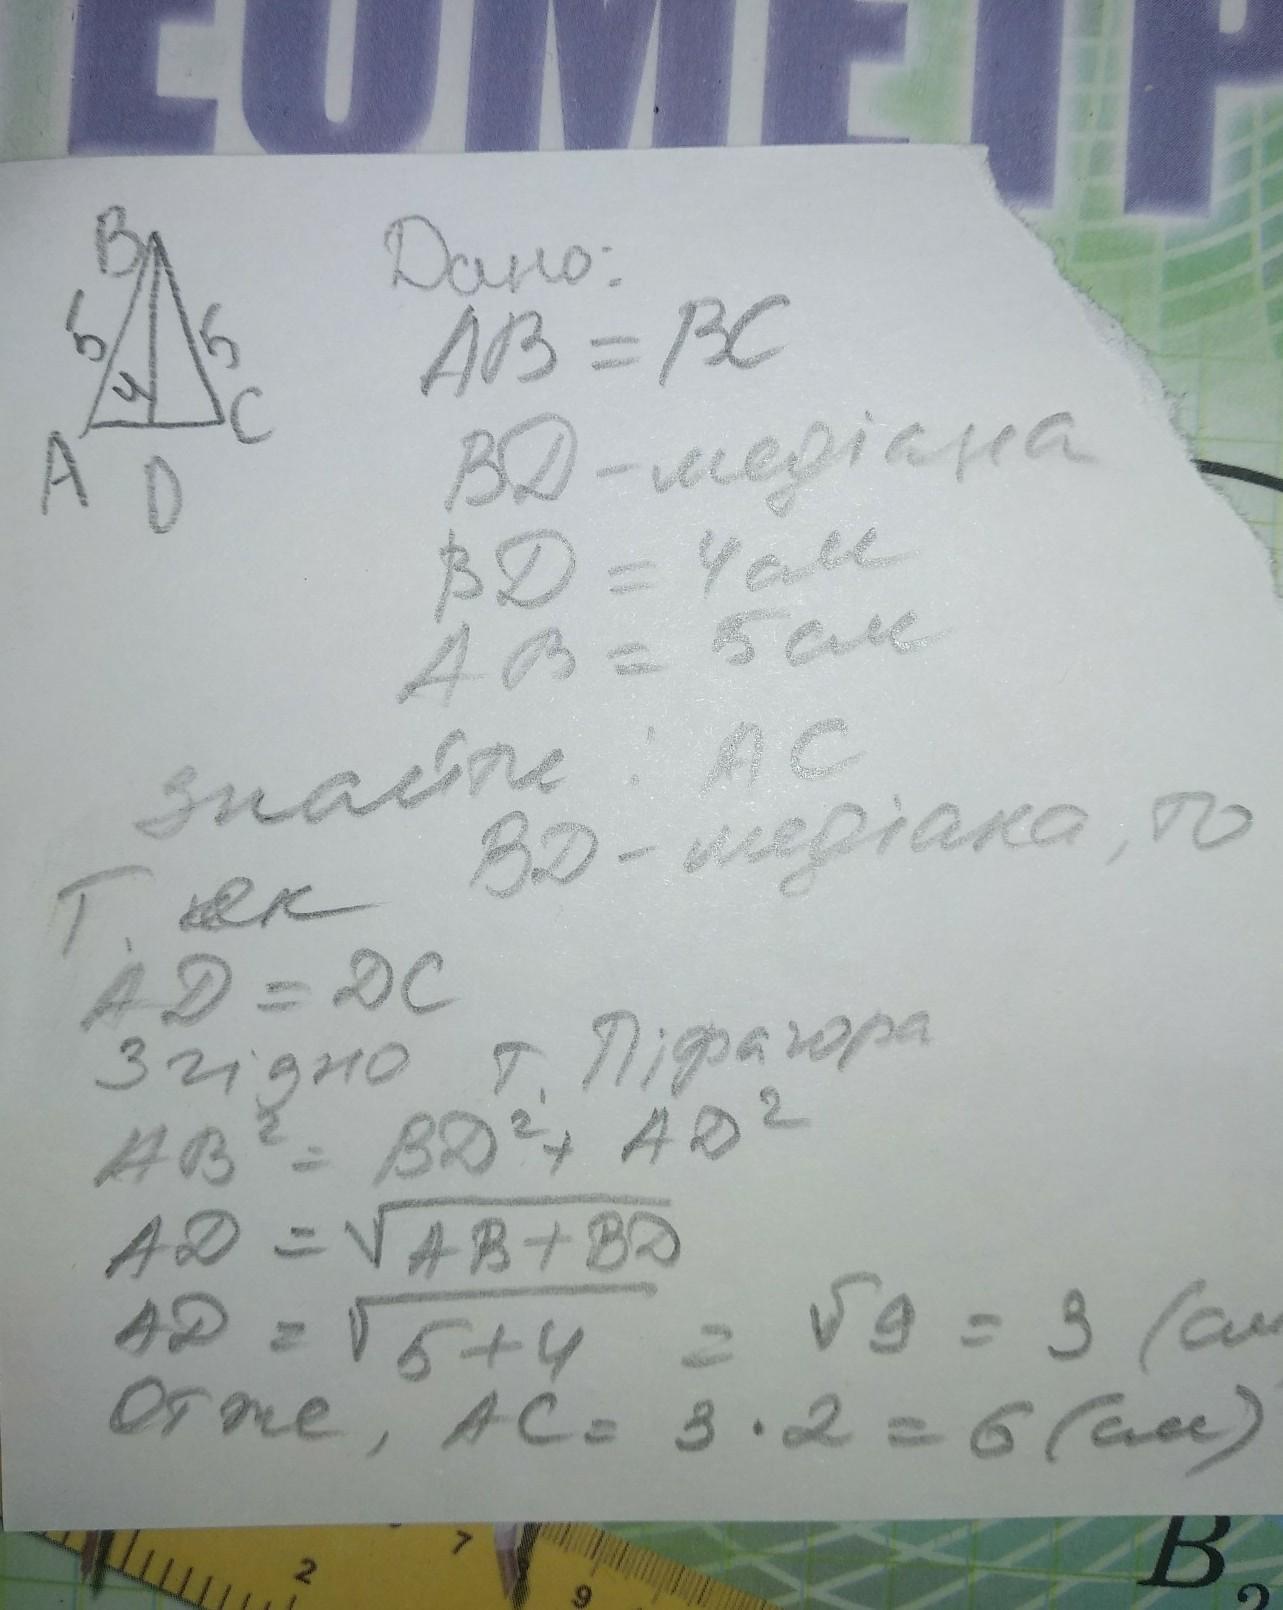 ЕОМЕТР
B
5
5
4
A
D
C
Дано:
AB = BC
BD - медіана
BD = 4 см
AB = 5 см
Знайти : AC
Т. як BD - медіана, то
AD = DC
Згідно т. Піфагора
AB² = BD² + AD²
AD = √AB+BD
AD = √5+4 = √9 = 3 (см
Отже, AC = 3 · 2 = 6 (см)
2
7
9
B₂